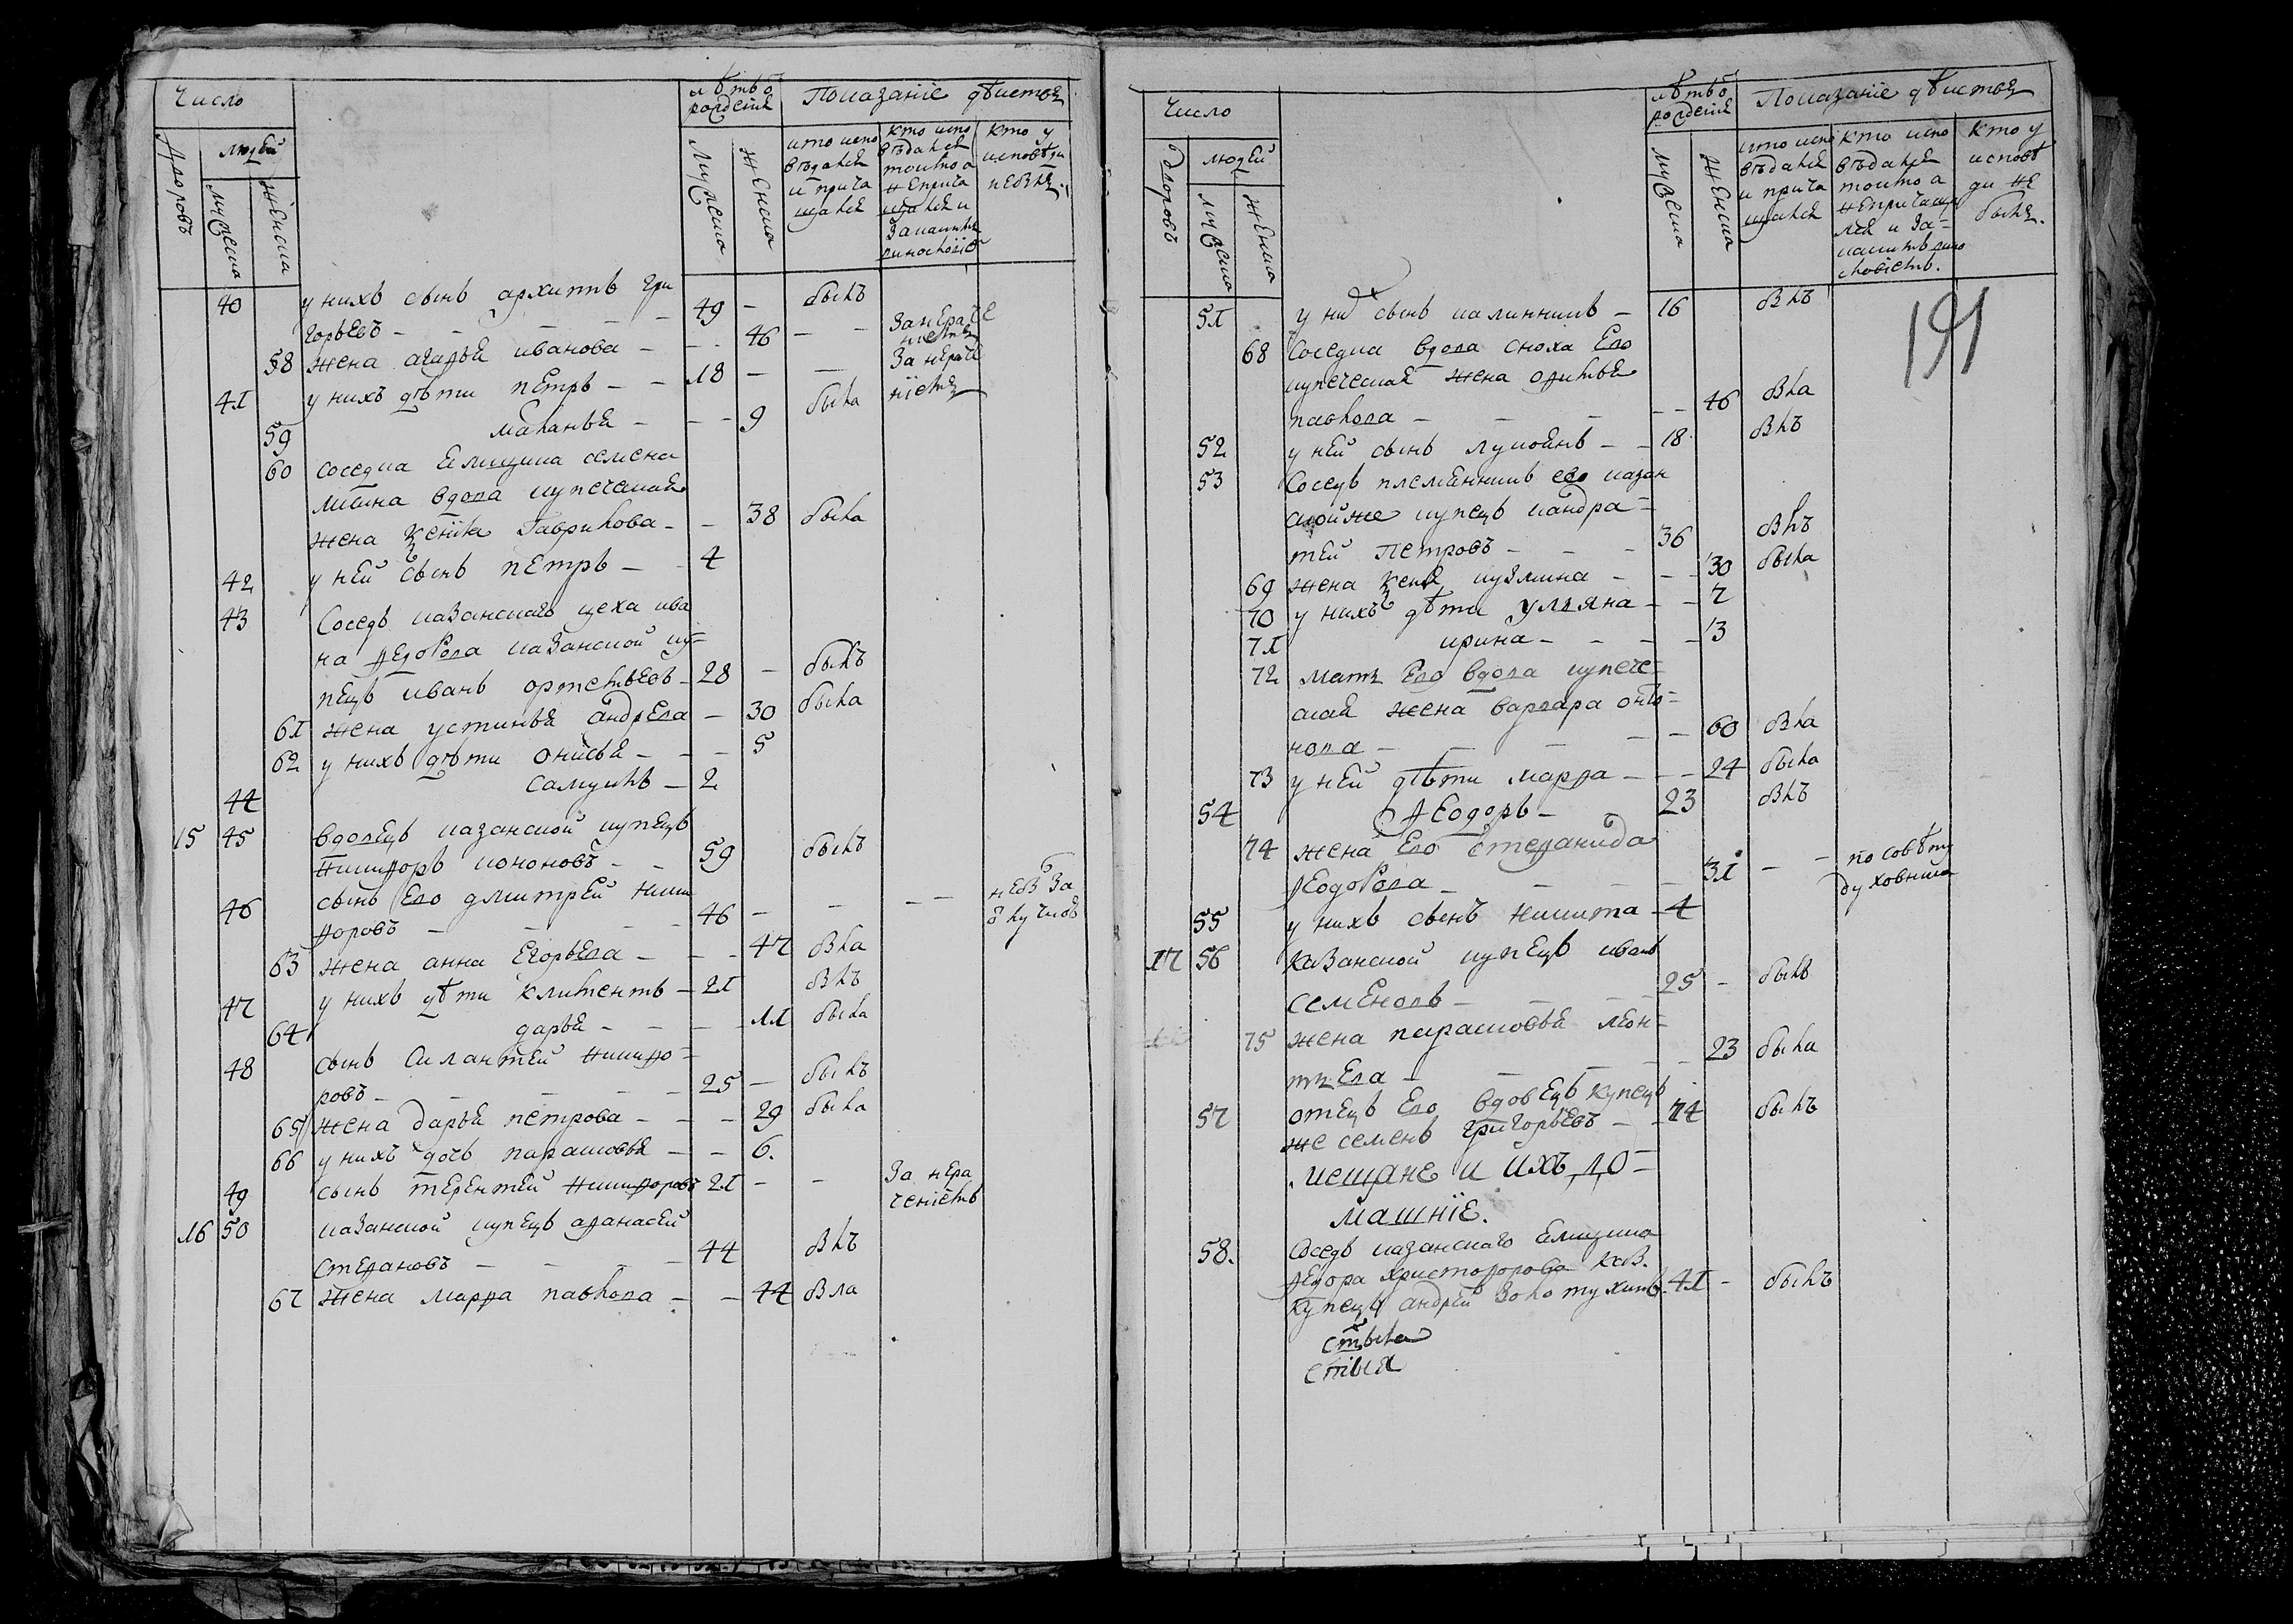 Число
лѣтъ ѿ рожденiя
Показанiе дѣиства
Дворовъ
людей
мужеска
женска
мужеска
женска
кто испо
вѣдался
и прича
щался
кто испо
вѣдался
токмо а
неприча
щался и
за какимъ
виноcловiемъ
кто у
исповѣди
небылъ
40 у нихъ сынъ архиппъ гри
горьевъ — 49 — былъ
58 жена агафья иванова — 46 — за нераче
нiемъ
41 у нихъ дѣти петръ — 18 — за нераче
нiемъ
59 маланья — 9 была
60 соседка
вдова купеческая
жена Ксенiя Гаврилова — 38 была
42 у ней сынъ петръ — 4
43 Соседъ казанскаго цеха ива
на Ѳедорова казанской ку=
пецъ иванъ артемьевъ — 28 — былъ
61 жена устинья андреева — 30 была
62 у нихъ дѣти онисья — 5
44 самуилъ — 2
15 45 вдовецъ казанской купецъ
никифоръ кононовъ — 59 былъ
46 сынъ Его дмитрей ники
форовъ — 46 — небъ за
ѿлучкою
63 жена анна Егорьева — 47 бла
47 у нихъ дѣти климентъ — 21 блъ
64 дарья — 11 была
48 сынъ силантей никифо=
ровъ — 25 — былъ
65 жена дарья петрова — 29 была
66 у нихъ дочь парасковья — 6.
49 сынъ терентей никифоровъ 21 — за нера
ченiемъ
16 50 казанской купецъ афанасей
степановъ — 44 блъ
67 жена марфа павлова — 44 бла
Число
лѣтъ ѿ рожденiя
Показанiе дѣиства
дворовъ
людей
мужеска
женска
мужеска
женска
кто испо
вѣдался
и прича
щался
кто испо
вѣдался
токмо а
непричащал
лся и за=
какимъ вино
словiемъ.
кто у
исповѣ
ди не
былъ.
191
51 у них сынъ калинникъ — 16 блъ
68 Соседка вдова сноха Его
купеческая жена
павлова — 46 бла
52 у ней сынъ лукоянъ — 18 блъ
53 Соседъ племянникъ его казан
скойже купецъ кандра=
тей петровъ — 36 блъ
69 жена Ксенiя кузмина — 30 была
70 у нихъ дѣти ульяна — 7
71 ирина — 3
72 мать Его вдова купече=
ская жена варвара анто=
нова — 60 бла
73 у ней дѣти марфа — 24 была
54 Ѳеодоръ — 23 блъ
74 жена Его степанида
Ѳеодорова — 31 — по совѣту
духовника
55 у нихъ сынъ никита — 4
17 56 казанской купецъ иванъ
семеновъ — 25 — былъ
75 жена парасковья леон=
тьева — 23 была
57 отецъ Его вдовецъ купецъ
же семенъ григорьевъ — 74 былъ
мещане и ихъ до=
машнiе.
58. Соседъ казанскаго
Ѳедора христофорова каз.
купецъ андрей золотухинъ. 41 — былъ